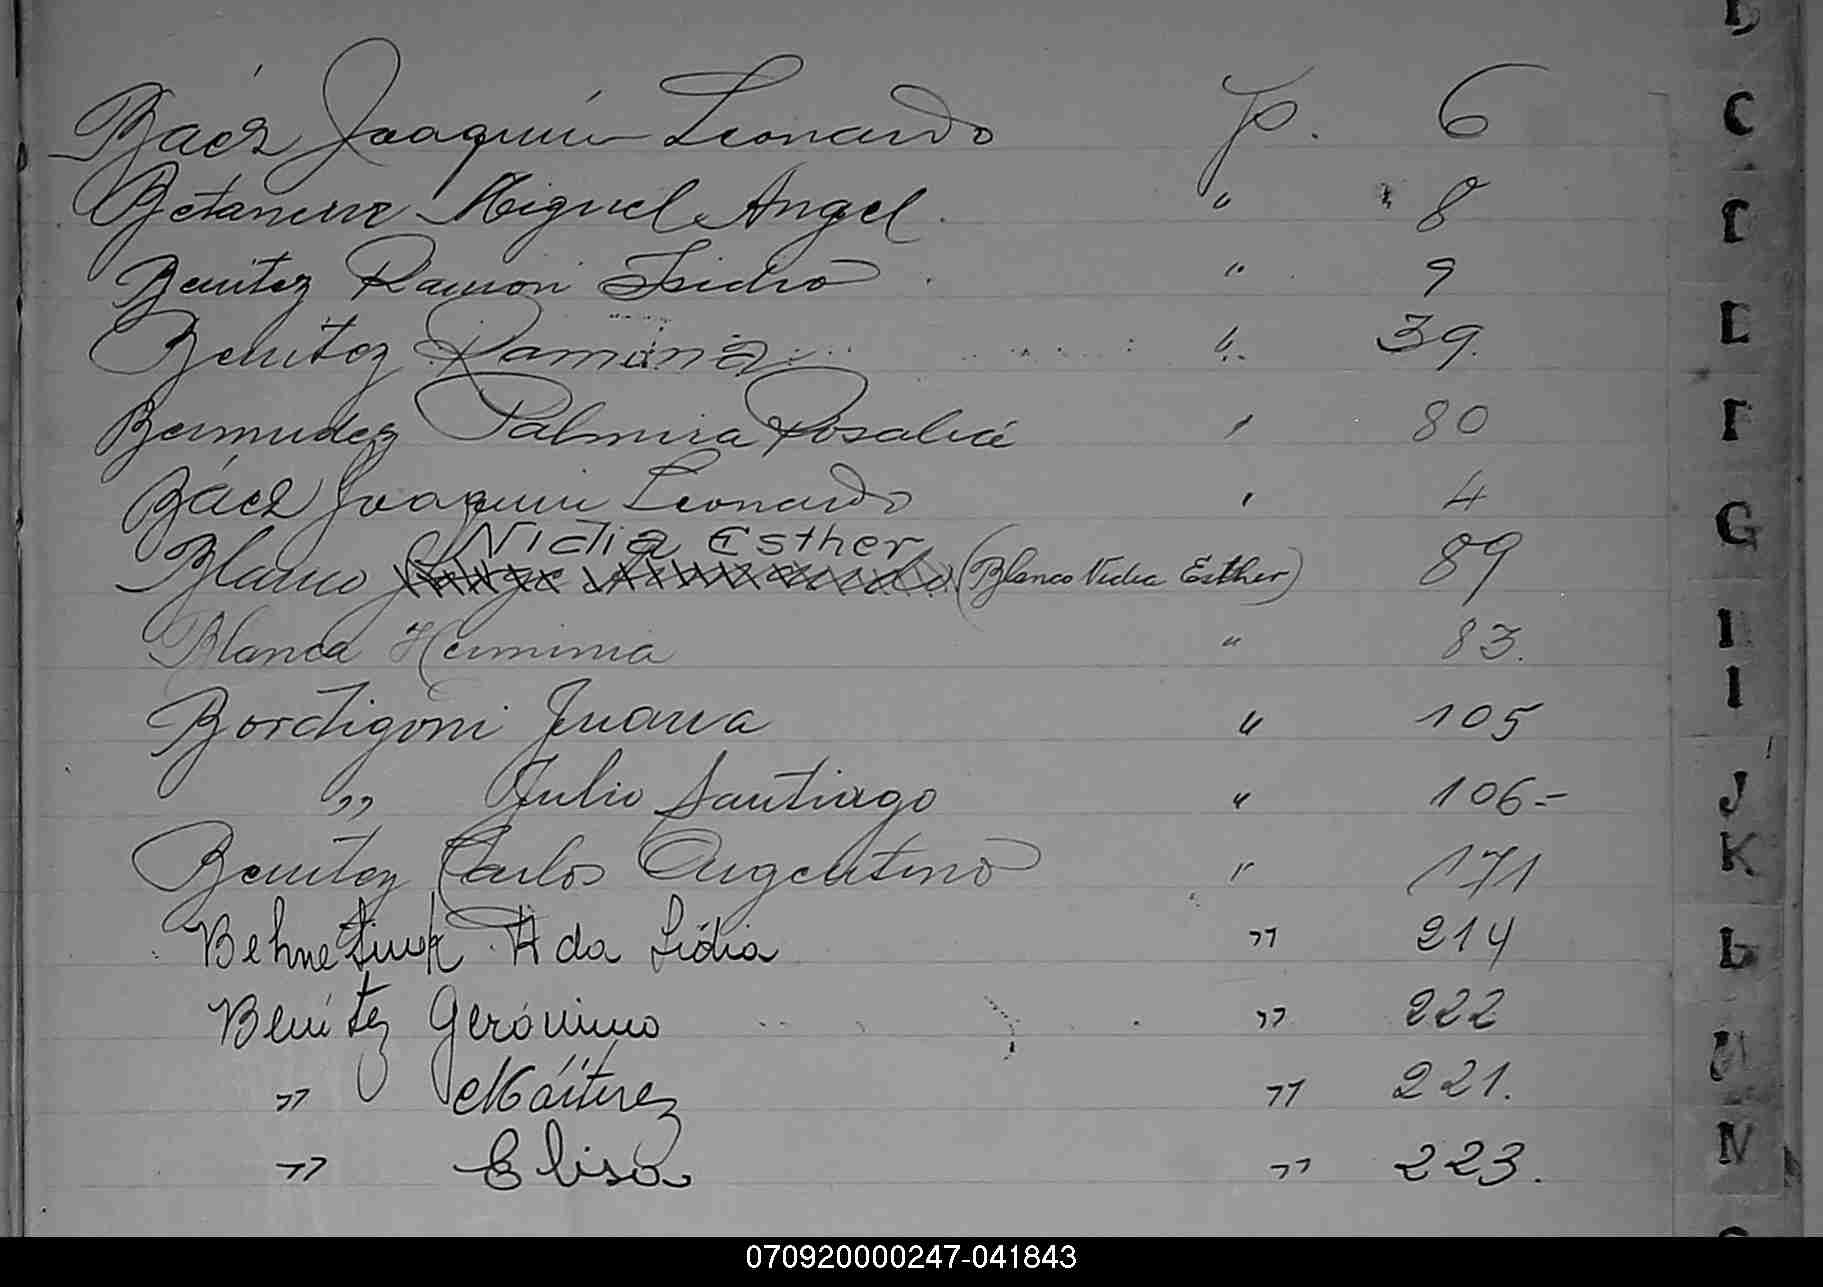 Báez Joaquín Leonardo p. 6
Betancur Miguel Angel. " 8
Benitez Ramon Isidro " 9
Benitez Ramona " 39.
Bermudez Palmira Rosalia ' 80
Báez Joaquin Leonardo ' 4
Nidia Esther
Blanco (Blanco Nidia Esther) 89
Blanca Herminia " 83.
Bordigoni Juana " 105
" Julio Santiago " 106=
Benitez Carlos Argentino " 171
Ada Lidia " 214
Benitez Gerónimo " 222
" " 221.
" Elisa " 223.
C
G
I
I
J
K
L
M
N
070920000247-041843